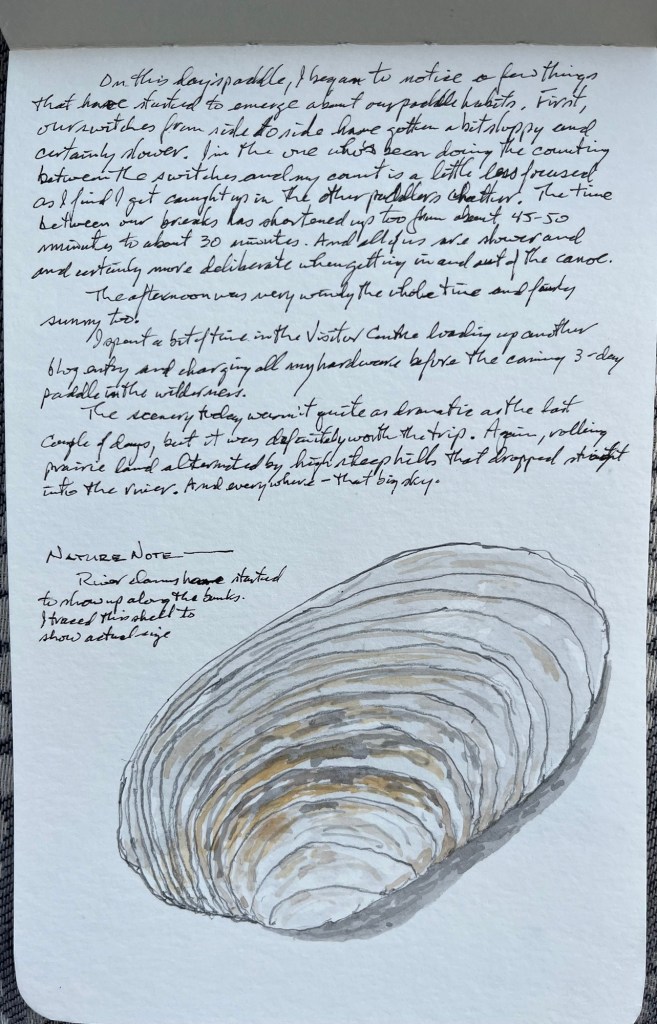 On this day's paddle, I began to notice a few things
that have started to emerge about our paddle habits. First,
our switches from side to side have gotten a bit sloppy and
certainly slower. I'm the one who's been doing the counting
between the switches and my count is a little less focused
as I find I get caught up in the other paddlers chatter. The time
between our breaks has shortened up too from about 45-50
minutes to about 30 minutes. And all of us are slower and
and certainly more deliberate when getting in and out of the canoe.
The afternoon was very windy the whole time and fairly
sunny too.
I spent a bit of time in the Visitor Centre loading up another
blog entry and charging all my hardware before the coming 3-day
paddle in the wilderness.
The scenery today wasn't quite as dramatic as the last
couple of days, but it was definitely worth the trip. Again, rolling
prairie land alternated by high steep hills that dropped straight
into the river. And everywhere - that big sky.
NATURE NOTE —
River clams have started
to show up along the banks.
I traced this shell to
show actual size